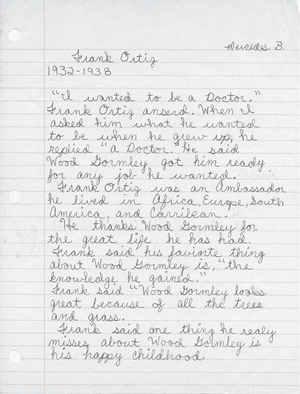 Mercedes B.
Frank Ortiz
1932-1938
"I wanted to be a Doctor."
Frank Ortiz anserd. When I
asked him what he wanted
to be when he grew up, he
replied "a Doctor." He said
Wood Gormley got him ready
for any job he wanted.
Frank Ortiz was an Ambassador
he lived in Africa, Europe, South
America, and Carribean.
He thanks Wood Gormley for
the great life he has had.
Frank said his faviorte thing
about Wood Gormley is, "the
knowledge he gained."
Frank said "Wood Gormley looks
great because of all the trees
and grass.
Frank said one thing he realy
misses about Wood Gormley is
his happy childhood